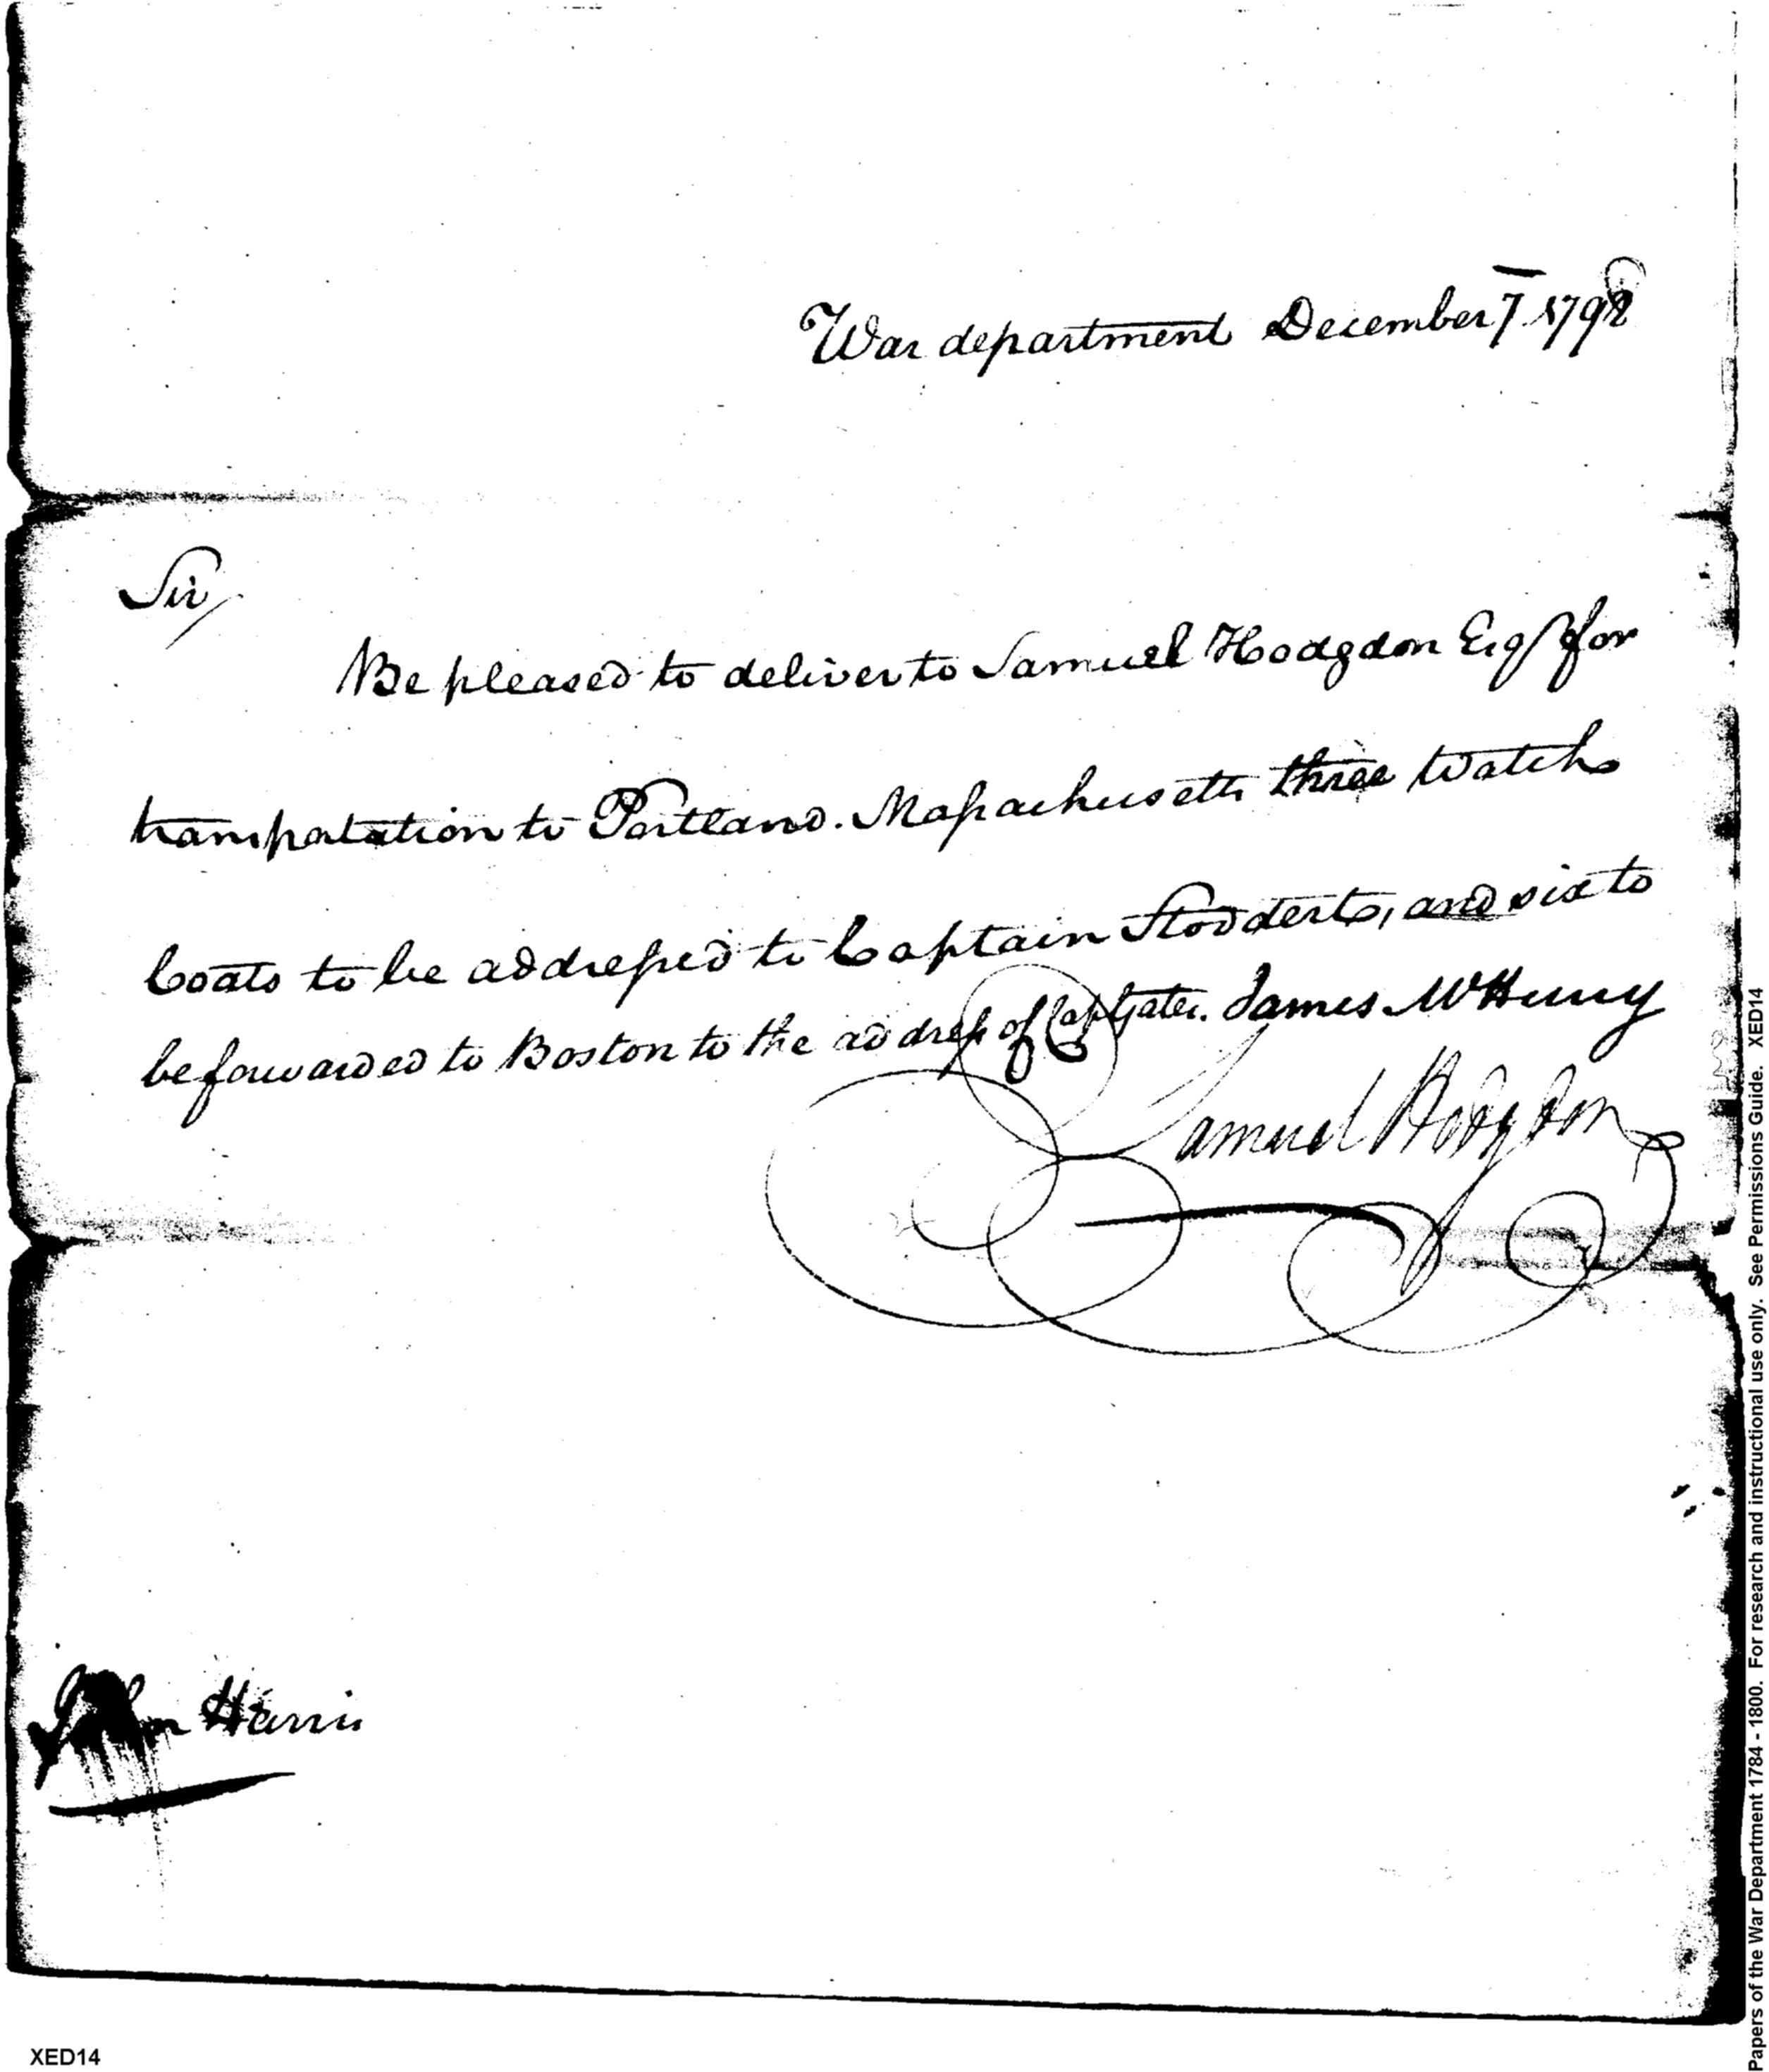 War department December 7 1798
Sir
Be pleased to deliver to Samuel Hodgdon Esqr for
transportation to Portland. Massachusetts three Watch
Coats to be addressed to Captain Stodderts, and six to
be forwarded to Boston to the address of Capt Gates. James McHenry
Samuel Hodgdon
John Harris
XED14
Papers of the War Department 1784 - 1800. For research and instructional use only. See Permissions Guide. XED14